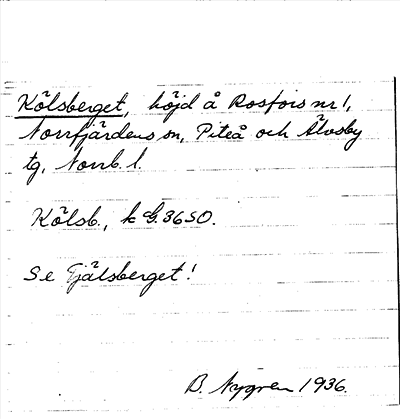 Kölsberget, höjd å Rosfors nr 1,
Norrfjärdens sn, Piteå och Älvsby
tg, Norrb. l.
Kölsb., k G. 36 SO.
Se Gjälsberget!
B. Nygren 1936.